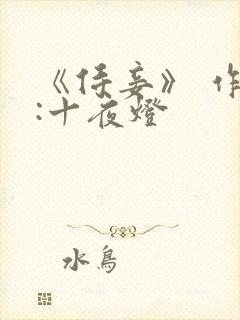 《侍妾》 作
:十夜燈
水鳥